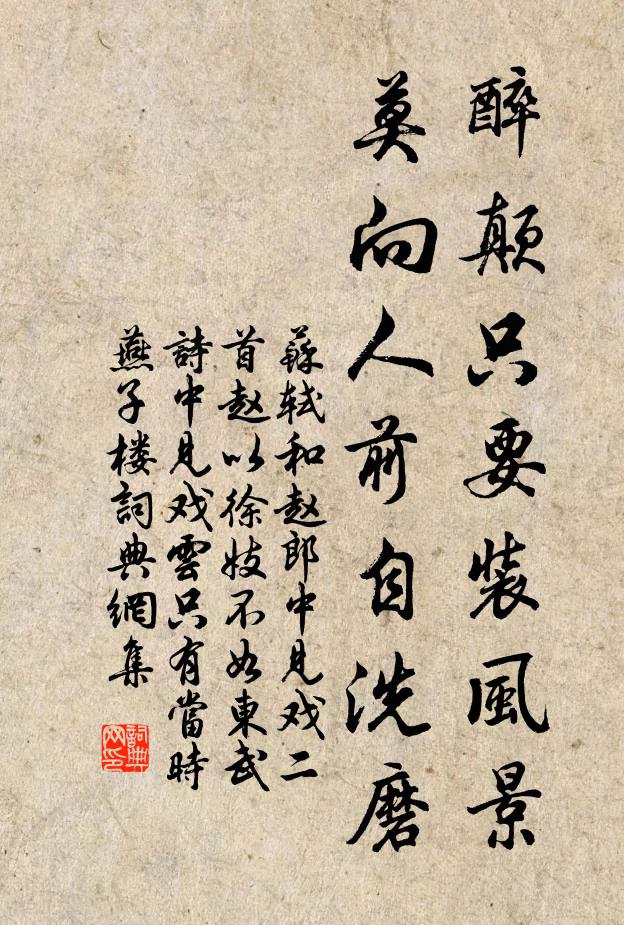 醉顛只要裝風景
莫向人前自洗磨
蘇軾和赵郎中見戏二
首赵以徐妓不如東武
詩中見戏雲只有當時
燕子楼詞典網集
詞典
网印